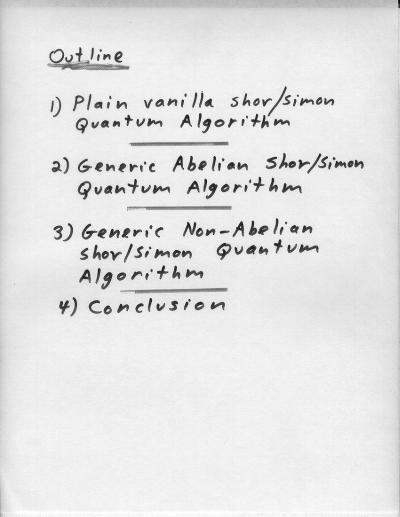 Outline
1) Plain vanilla shor/simon
Quantum Algorithm
2) Generic Abelian Shor/Simon
Quantum Algorithm
3) Generic Non-Abelian
Shor/Simon Quantum
Algorithm
4) Conclusion